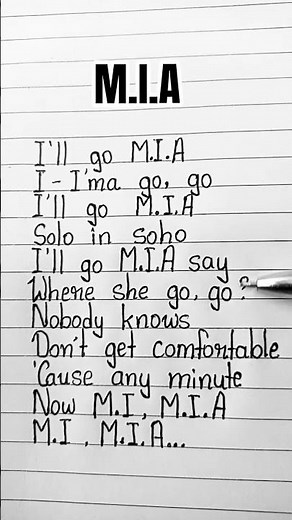 M.I.A
I'll go M.I.A
I-I'ma go, go
I'll go M.I.A
Solo in soho
I'll go M.I.A say
Where she go, go?
Nobody knows
Don't get comfortable
'Cause any minute
Now M.I, M.I.A
M.I, M.I.A...